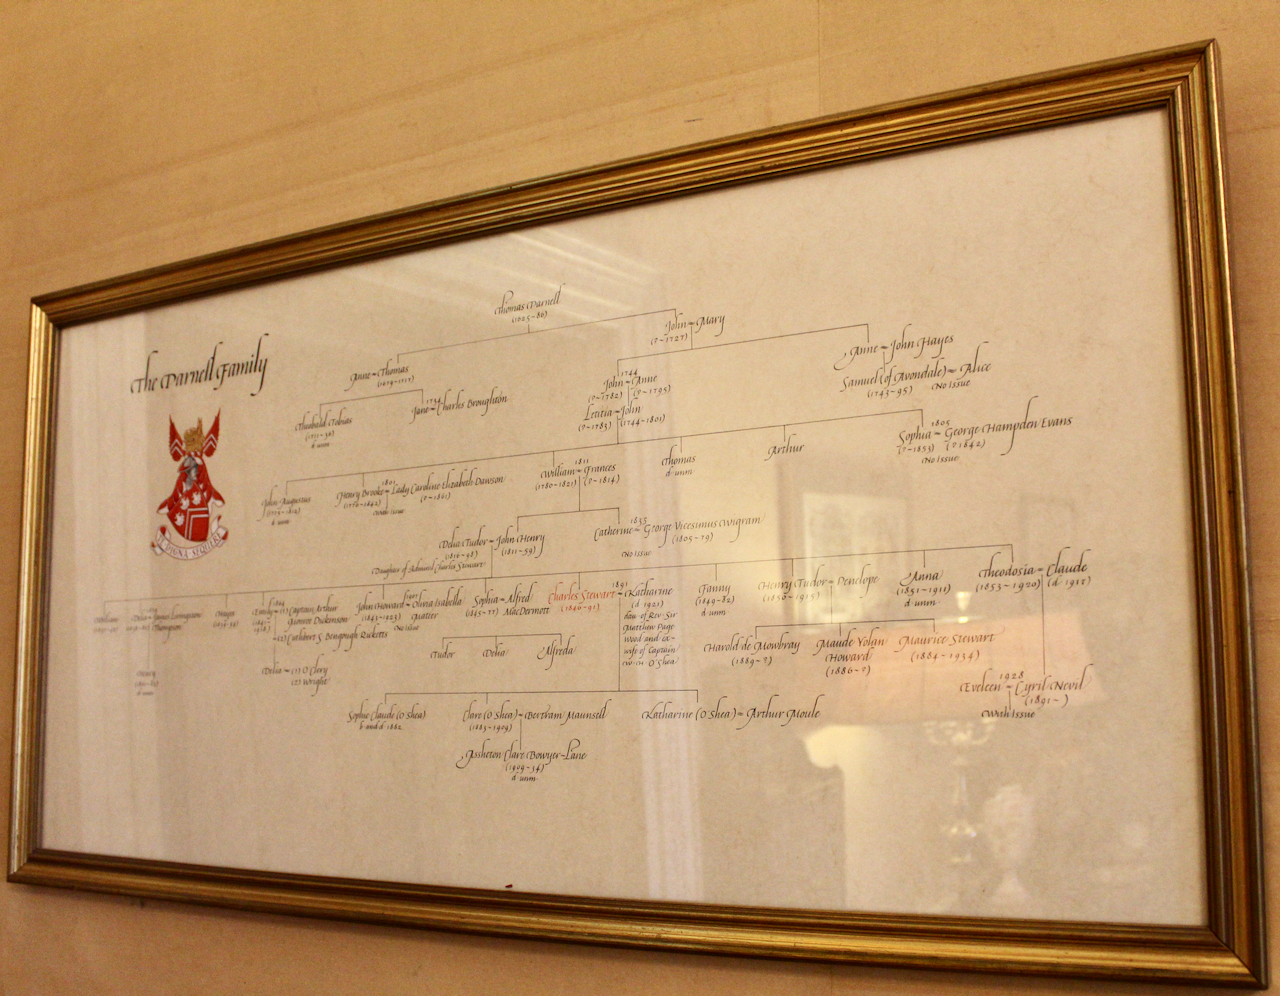 The Parnell Family
Thomas Parnell
(1625-86)
John = Mary
(?-1727)
Anne = Thomas
(1679-1717)
Anne = John Hayes
Samuel (of Avondale) = Alice
(1743-95) No Issue
1744
John = Anne
(?-1782) (?-1795)
Letitia = John
(?-1783) (1744-1801)
Theobald Tobias
d unm
1734
Jane = Charles Broughton
1805
Sophia = George Hampden Evans
(?-1853) (?1842)
No Issue
Thomas
d unm
Arthur
1811
William = Frances
(1780-1821) (?-1814)
John Augustus
d unm
1801
Henry Brooke = Lady Caroline Elizabeth Dawson
(1776-1842) (?-1861)
With Issue
Delia Tudor = John Henry
(1816-98) (1811-59)
Daughter of Admiral Charles Stewart
1835
Catherine = George Vicesimus Wigram
(1805-79)
No Issue
William
Delia = James Livingston
Thompson
Hayes
Emily = (1) Captain Arthur
Monroe Dickinson
(2) Cuthbert S Bengough Ricketts
1907
John Howard = Olivia Isabella
(1843-1923) Mateer
No Issue
Sophia = Alfred
(1845-77) MacDermott
Charles Stewart =
(1846-91)
1891
Katharine
(d 1921)
dau of Rev Sir
Matthew Page
Wood and ex-
wife of Captain
O'Shea
Fanny
(1849-82)
d unm
Henry Tudor = Penelope
(1850-1915)
Anna
(1851-1911)
d unm
Theodosia = Claude
(1853-1920) (d 1918)
Henry
d unm
Delia = (1) O'Clery
(2) Wright
Tudor
Delia
Alfreda
Harold de Mowbray
(1889-?)
Maude Yolan
Howard
(1886-?)
Maurice Stewart
(1884-1934)
1928
Eveleen = Cyril Nevil
(1891-)
With Issue
Sophie Claude (O'Shea)
b and d 1882
Clare (O'Shea) = Bertram Maunsell
(1883-1909)
Katharine (O'Shea) = Arthur Moule
Assheton Clare Bowyer-Lane
(1909-34)
d unm